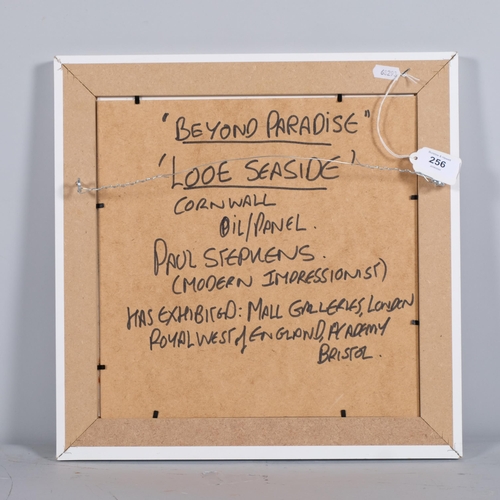 "BEYOND PARADISE"
'LOOE SEASIDE'
CORNWALL
OIL/PANEL.
PAUL STEPHENS.
(MODERN IMPRESSIONIST)
HAS EXHIBITED: MALL GALLERIES, LONDON
ROYAL WEST of ENGLAND, ACADEMY
BRISTOL.
256